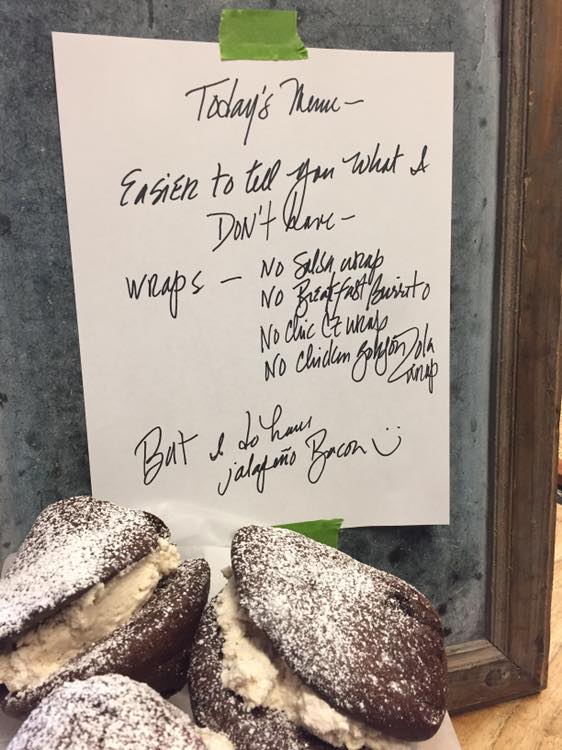 Today's Menu -
Easier to tell you what I
Don't have -
wraps - No Salsa wrap
No Breakfast Burrito
No chic CZ wrap
No chicken gorgonzola
wrap
But I do have
jalapeño Bacon ☺